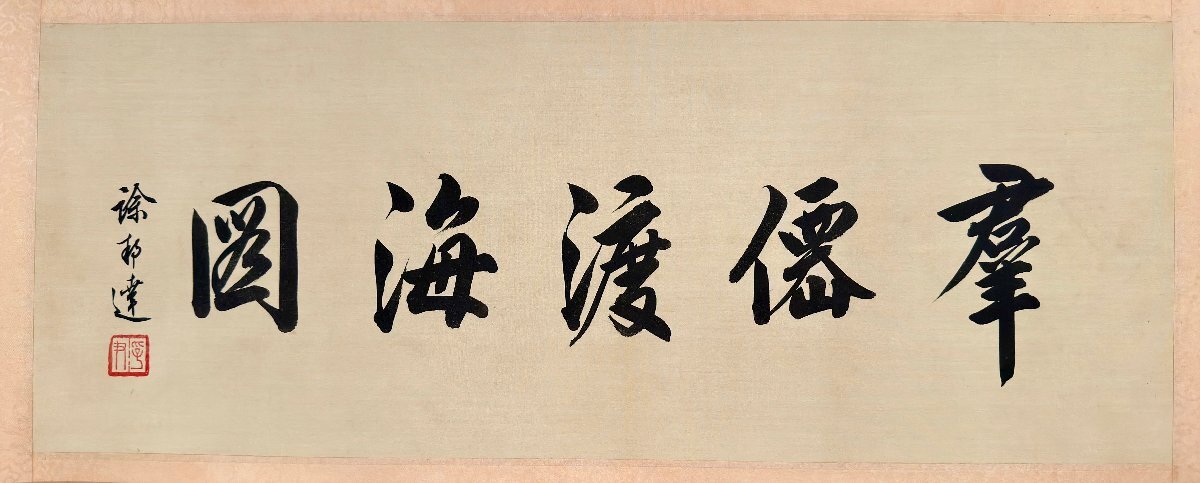 羣僊渡海圖
徐邦達